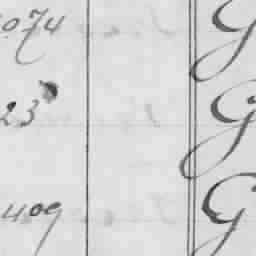 074 G
23 G
409 G